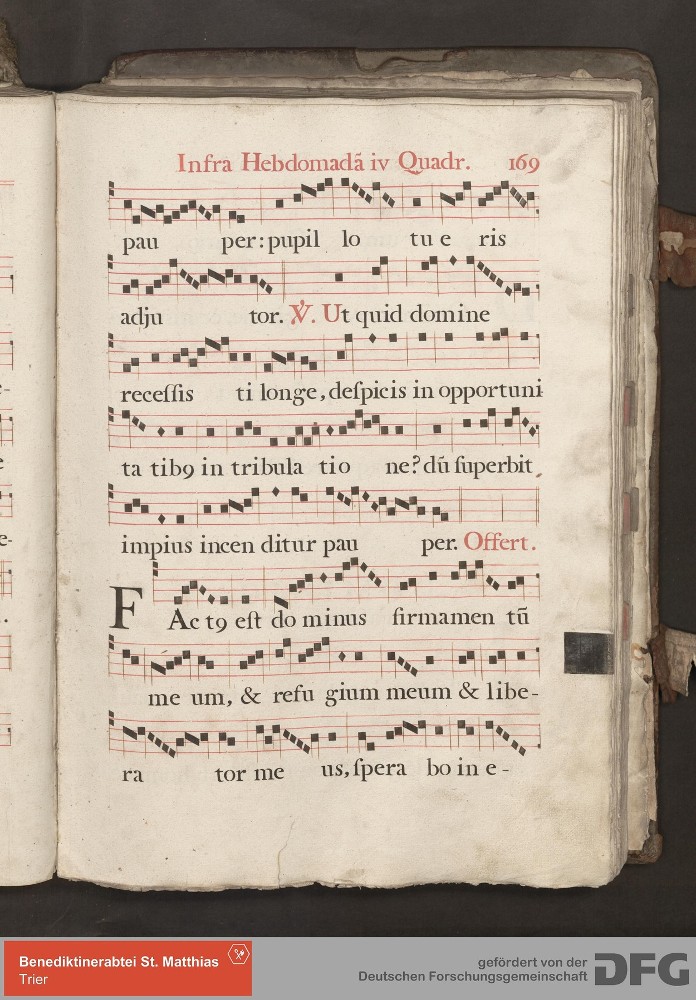 Infra Hebdomadã iv Quadr. 169
pau per: pupil lo tu e ris
adju tor. ℣. Ut quid domine
receſſis ti longe, deſpicis in opportuni-
ta tibꝰ in tribula tio ne? dũ ſuperbit
impius incen ditur pau per. Offert.
FAc tꝰ eſt do minus firmamen tũ
me um, & refu gium meum & libe-
ra tor me us, ſpera bo in e-
e-
e
e-
.
Benediktinerabtei St. Matthias
Trier
gefördert von der
Deutschen Forschungsgemeinschaft DFG